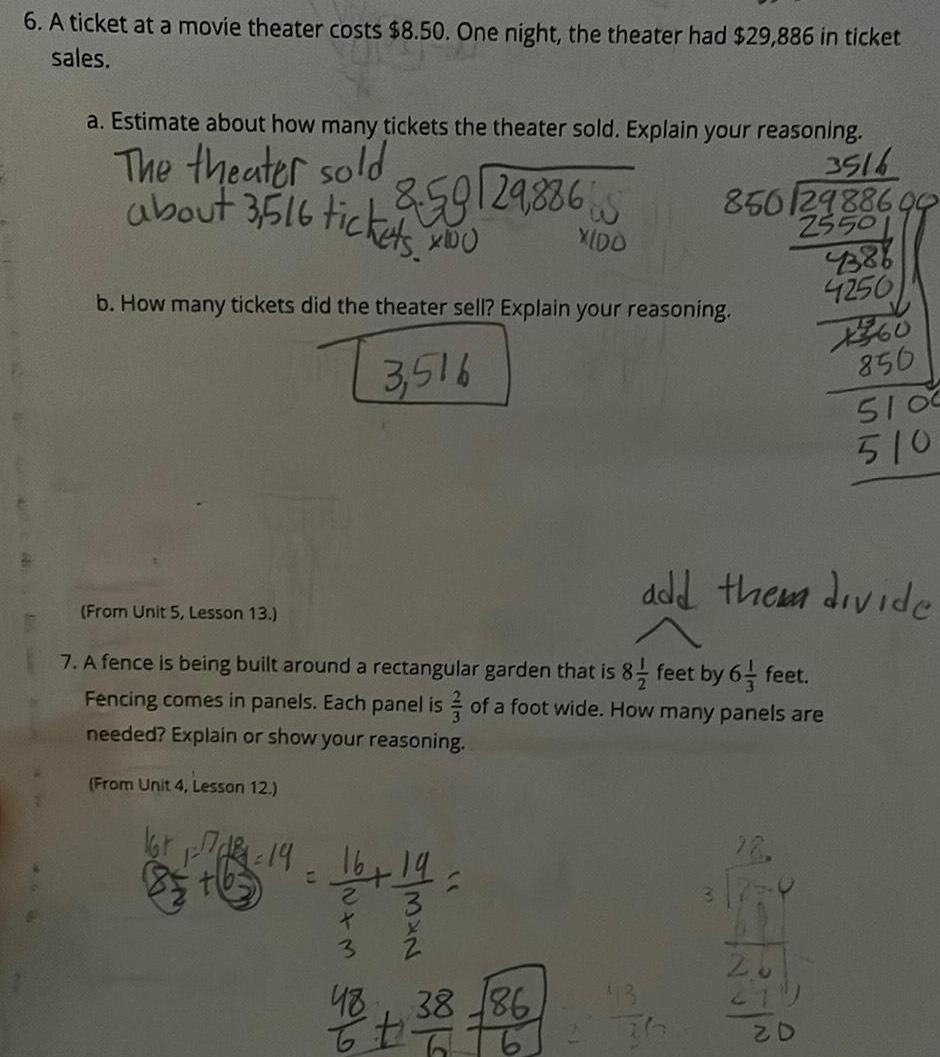 6. A ticket at a movie theater costs $8.50. One night, the theater had $29,886 in ticket
sales.
a. Estimate about how many tickets the theater sold. Explain your reasoning.
The theater sold
about 3,516 tickets.
8.50 29,886
x100 x100
3516
850 29886 00
2550
4386
4250
1360
850
510
510
b. How many tickets did the theater sell? Explain your reasoning.
3,516
(From Unit 5, Lesson 13.)
add them divide
7. A fence is being built around a rectangular garden that is 8 1/2 feet by 6 1/3 feet.
Fencing comes in panels. Each panel is 2/3 of a foot wide. How many panels are
needed? Explain or show your reasoning.
(From Unit 4, Lesson 12.)
8 1/2 + 6 1/3 = 16/2 + 19/3 =
x x
3 2
48/6 + 38/6 = 86/6
20